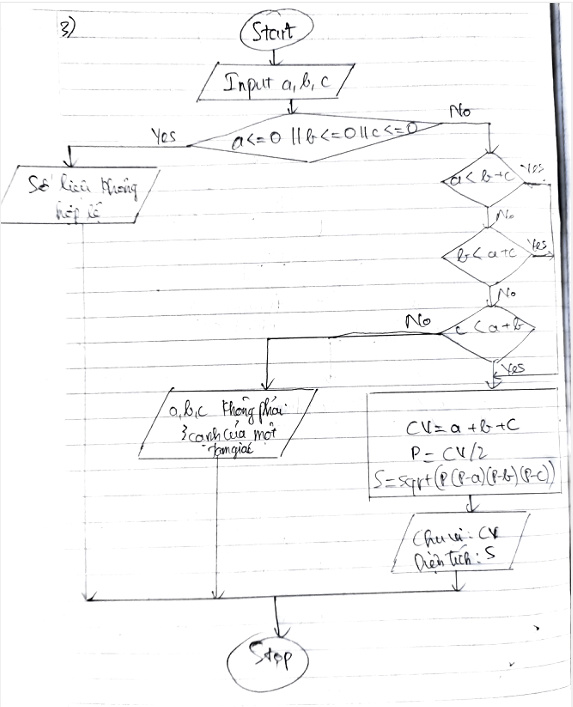 3)
Start
Input a, b, c
a<=0 || b<=0 || c<=0
Yes
No
Số liệu không
hợp lệ
a < b+c
Yes
No
b < a+c
Yes
No
c < a+b
No
Yes
a,b,c không phải
3 cạnh của một
tam giác
CV = a + b + c
P = CV/2
S = sqrt(P(P-a)(P-b)(P-c))
Chu vi: CV
Diện tích: S
Stop